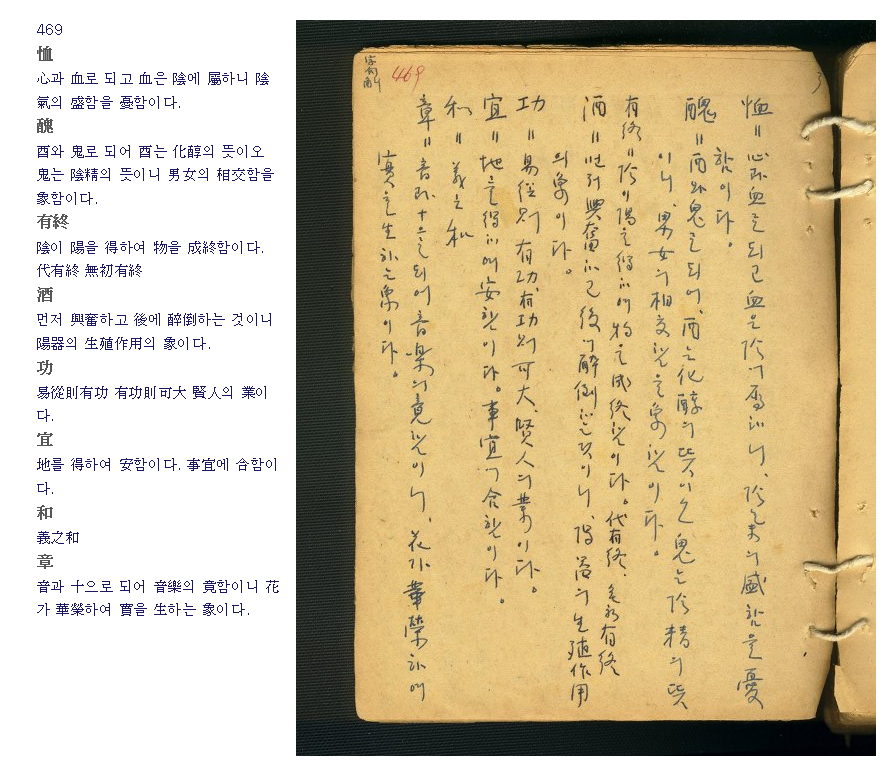 469
恤
心과 血로 되고 血은 陰에 屬하니 陰
氣의 盛함을 憂함이다.
醜
酉와 鬼로 되어 酉는 化醇의 뜻이오
鬼는 陰精의 뜻이니 男女의 相交함을
象함이다.
有終
陰이 陽을 得하여 物을 成終함이다.
代有終 無初有終
酒
먼저 興奮하고 後에 醉倒하는 것이니
陽器의 生殖作用의 象이다.
功
易從則有功 有功則可大 賢人의 業이
다.
宜
地를 得하여 安함이다. 事宜에 合함이
다.
和
義之和
章
音과 十으로 되어 音樂의 竟함이니 花
가 華榮하여 實을 生하는 象이다.
469
恤 = 心과 血로 되고 血은 陰에 屬하니, 陰氣의 盛함을 憂
함이다.
醜 = 酉와 鬼로 되어, 酉는 化醇의 뜻이오 鬼는 陰精의 뜻
이니, 男女의 相交함을 象함이다.
有終 = 陰이 陽을 得하여 物을 成終함이다. 代有終, 無初有終
酒 = 먼저 興奮하고 後에 醉倒하는 것이니, 陽器의 生殖作用
의 象이다.
功 = 易從則有功, 有功則可大, 賢人의 業이다.
宜 = 地를 得하여 安함이다. 事宜에 合함이다.
和 = 義之和
章 = 音과 十으로 되어 音樂의 竟함이니, 花가 華榮하여
實을 生하는 象이다.